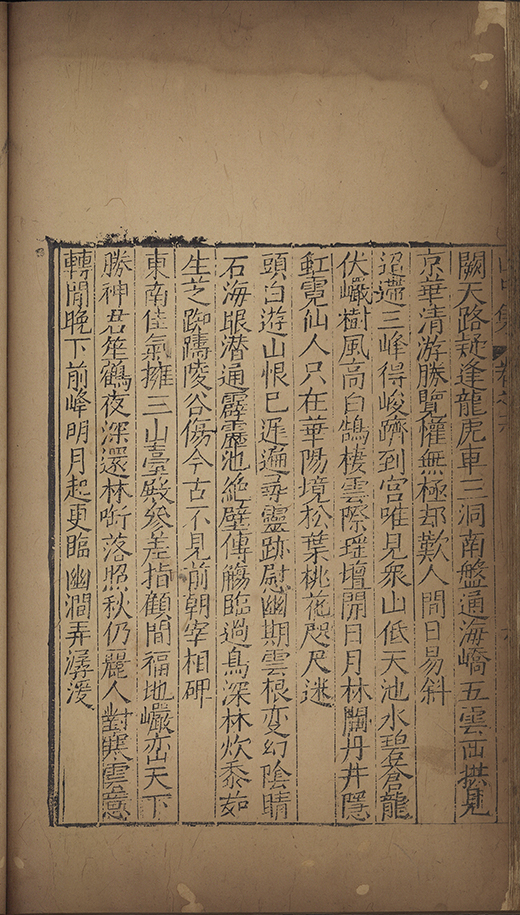 山中集 卷之六
闕天路疑逢龍虎車三洞南盤通海嶠五雲西拱見
京華清游勝覽權無極却歎人間日易斜
迢遞三峰得峻躋到宮唯見衆山低天池水碧蒼龍
伏巖樹風高白鵠棲雲際瑤壇開日月林丹井隱
虹霓仙人只在華陽境松葉桃花咫尺迷
頭白遊山恨已遲遍尋靈跡慰幽期雲根变幻陰晴
石海眼潜通霹靂池絶壁傳觴臨過鳥深林炊黍茹
生芝踟躊陵谷傷今古不見前朝宰相碑
東南佳氣擁三山臺殿參差指顧間福地巖巒天下
勝神君笙鶴夜深還林銜落照秋仍麗人對寒雲意
轉閒晚下前峰明月起更臨幽澗弄潺湲